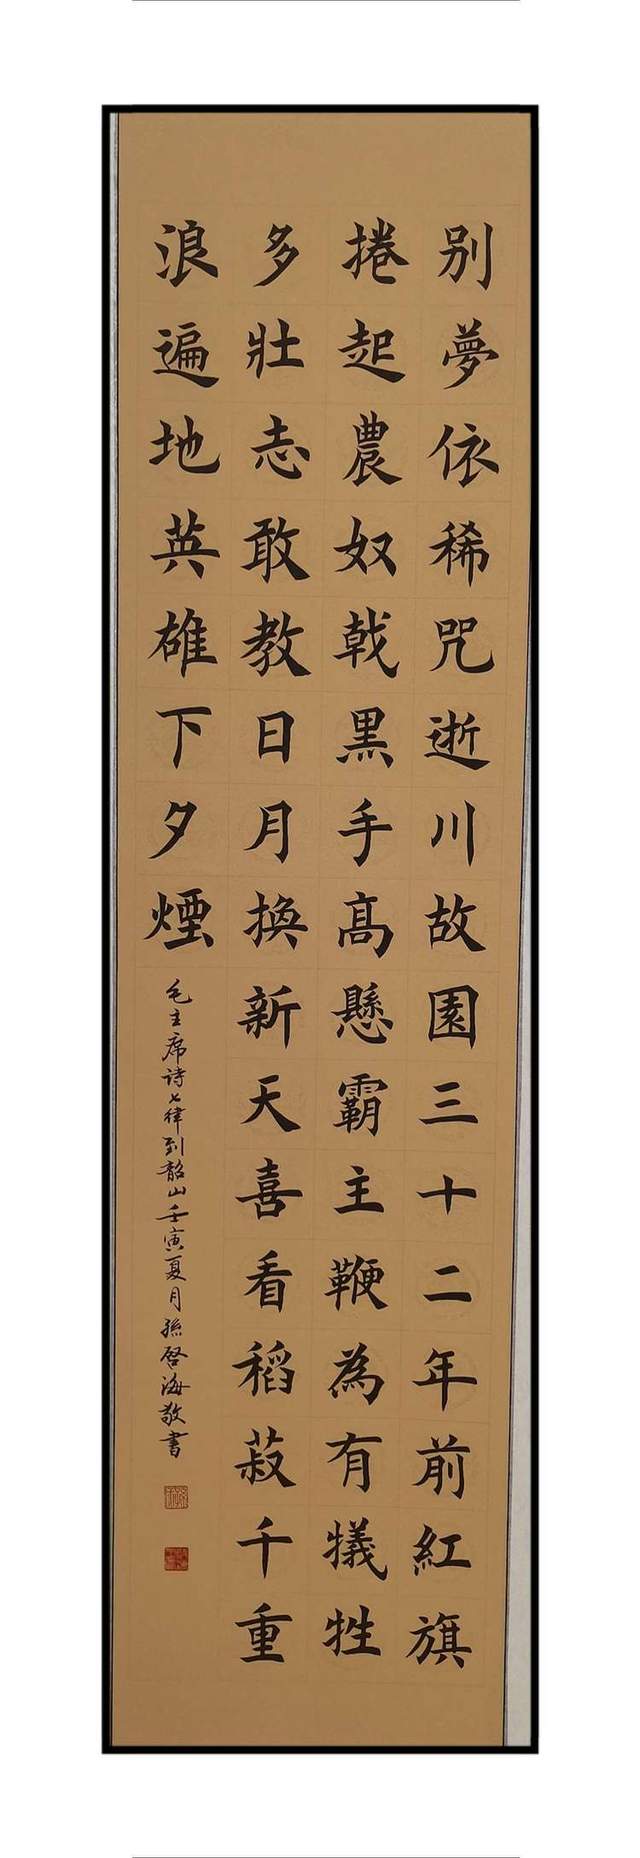 别夢依稀咒逝川故園三十二年前紅旗
捲起農奴戟黑手高懸霸主鞭為有犧牲
多壯志敢教日月換新天喜看稻菽千重
浪遍地英雄下夕煙
毛主席诗七律到韶山壬寅夏月孫啓海敬書